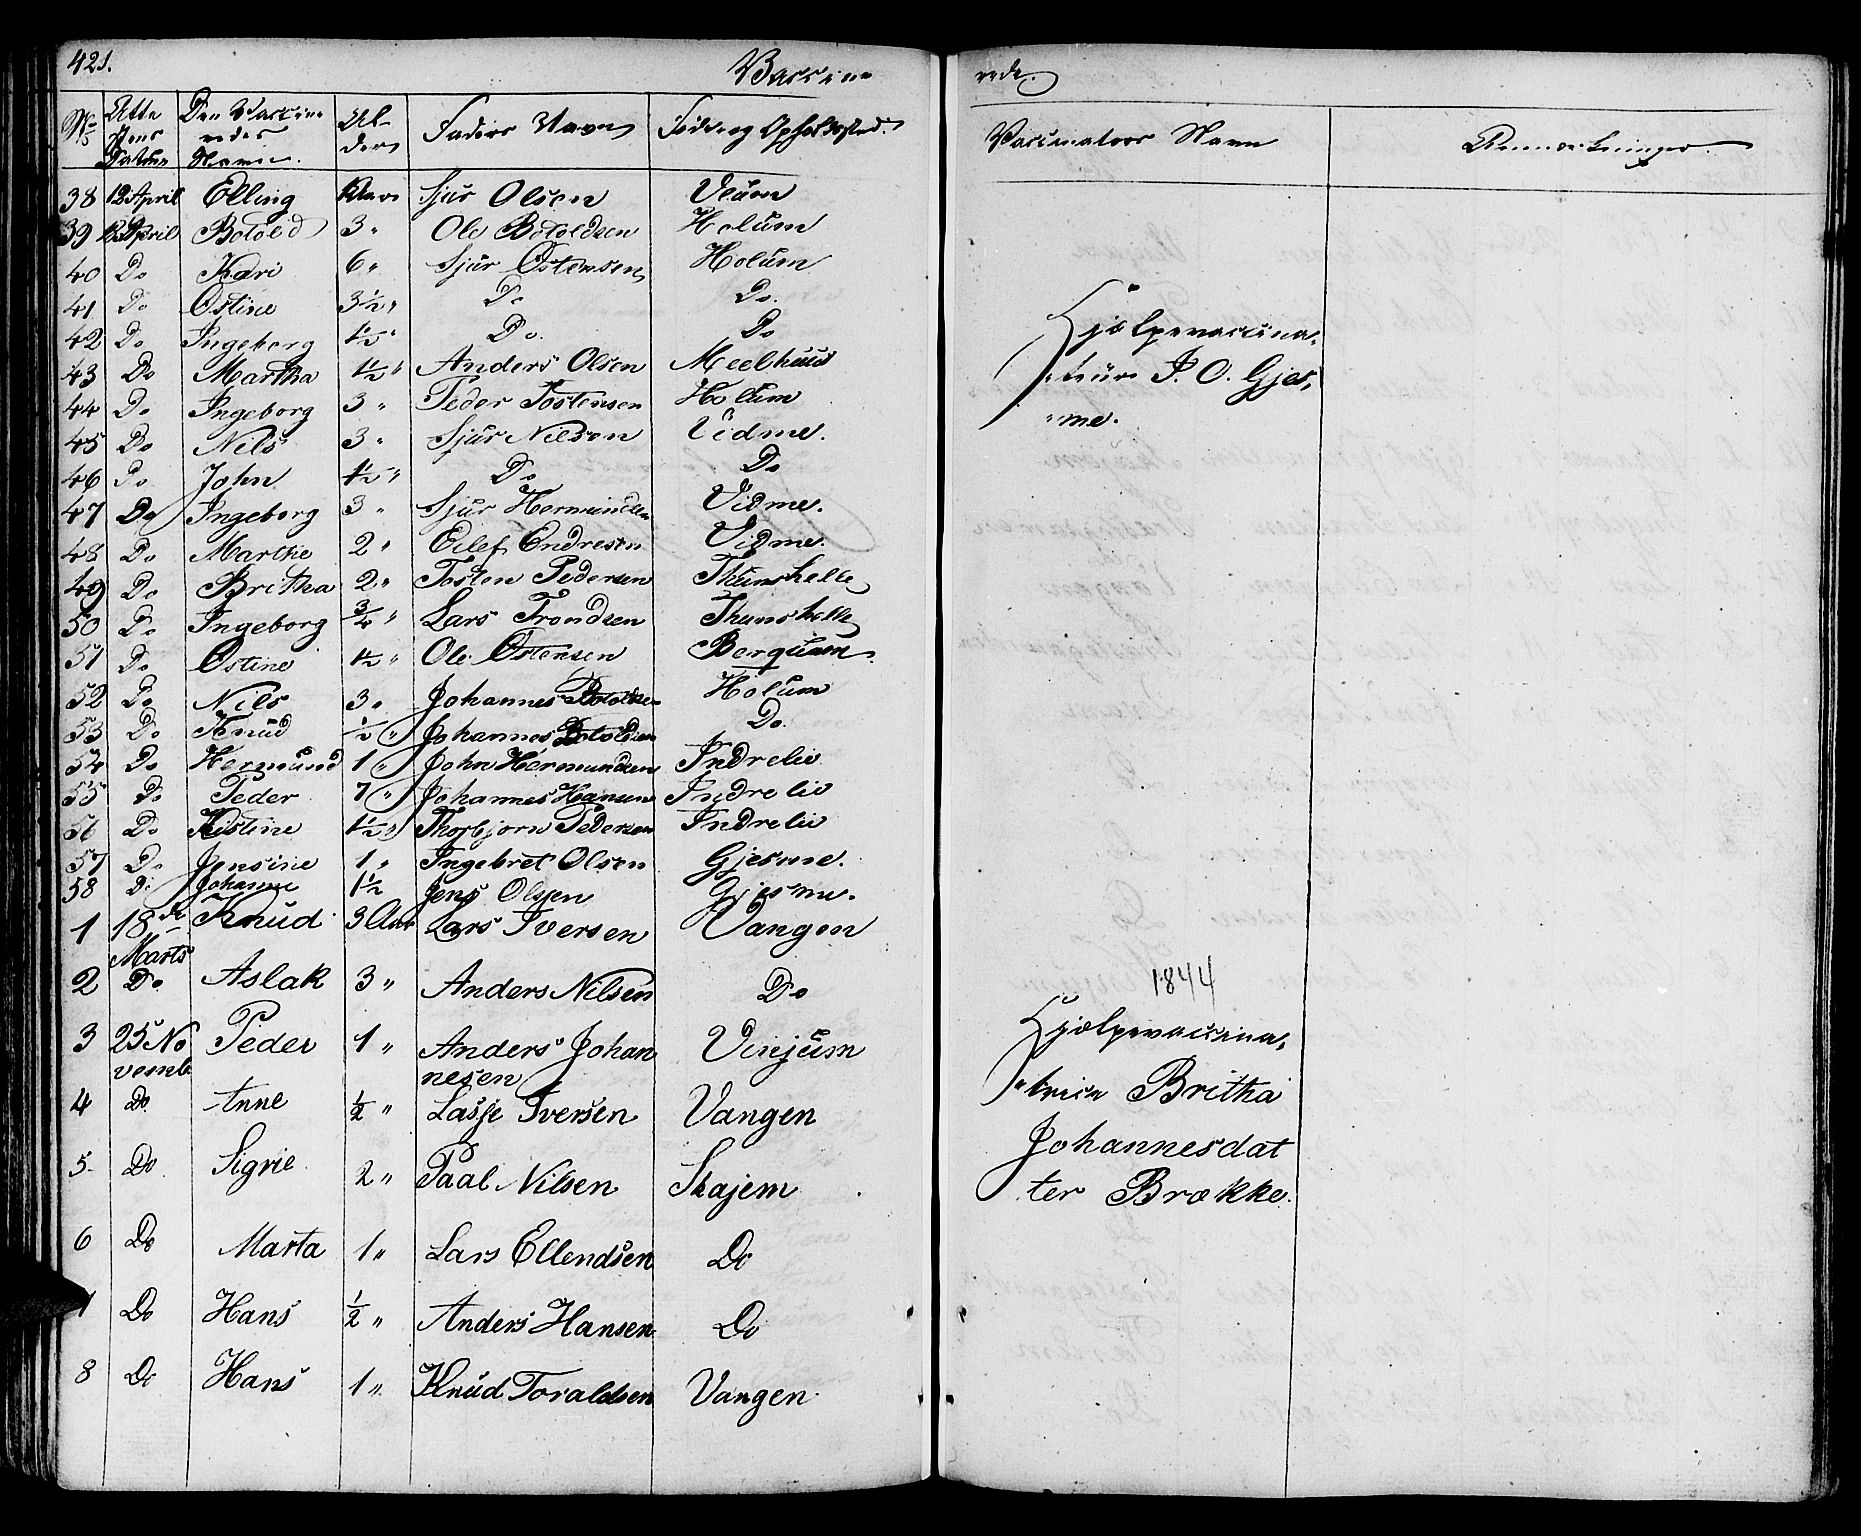 421.
Vaccine
rede.
No
Atte
stens
Datum
Den Vaccine
redes
Navn.
Al-
der
Faders Navn
Føde og Opholdssted.
Vaccinateurs Navn
Anmærkninger.
38 12 April Elling Sjur Olsen Ulum
39 12 April Botold 3 " Ole Botoldsen Holum
40 Do Kari 6 " Sjur Østensen Holum
41 Do Østine 3 1/2 " Do Do.
42 Do Ingeborg 1/2 " Do. Do
43 Do Martha 1 1/2 " Anders Olsen Meelhuus
44 Do Ingeborg 3 " Peder Tostensen Holum
45 Do Nils 3 " Sjur Nilson Vidme.
46 Do John 1 1/2 " Do Do
47 Do Ingeborg 3 " Sjur Hermundsen Vidme.
48 Do Marthe 2 " Eilef Endresen Vidme.
49 Do Britha 2 " Tosten Pedersen Thunshelle
50 Do Ingeborg 3/4 " Lars Trondsen Thunshelle
51 Do Østine 1 1/2 " Ole Østensen Berqum
52 Do Nils 3 " Johannes Botoldsen Holum
53 Do Knud 1/2 " Johannes Botoldsen Do.
54 Do Hermund 1 " John Hermundsen Indrelie
55 Do Peder 7 " Johannes Hansen Indrelie
56 Do Kistine 1 1/2 " Thorbjørn Pedersen Indrelie
57 Do Jensine 1 " Ingebret Olsen Gjesme.
58 Do Johanne 1 1/2 Jens Olsen Gjesme.
Hjelpevaccina-
teur I. O. Gjes-
me.
1 18de Knud 3 Aar Lars Iversen Vangen
Marts
2 Do Aslak 3 " Anders Nilsen Do
3 25 No Peder 1 " Anders Johan Vinjum
vemb nesen
4 Do Anne 1/2 " Lasse Iversen Vangen
5 Do Sigrie 2 " Paal Nilsen Skajem
6 Do Marta 1 " Lars Ellendsen Do
7 Do Hans 1/2 " Anders Hansen Do
8 Do Hans 1 " Knud Toraldsen Vangen
1844
Hjælpevaccina-
trice Britha
Johannesdat
ter Brække.